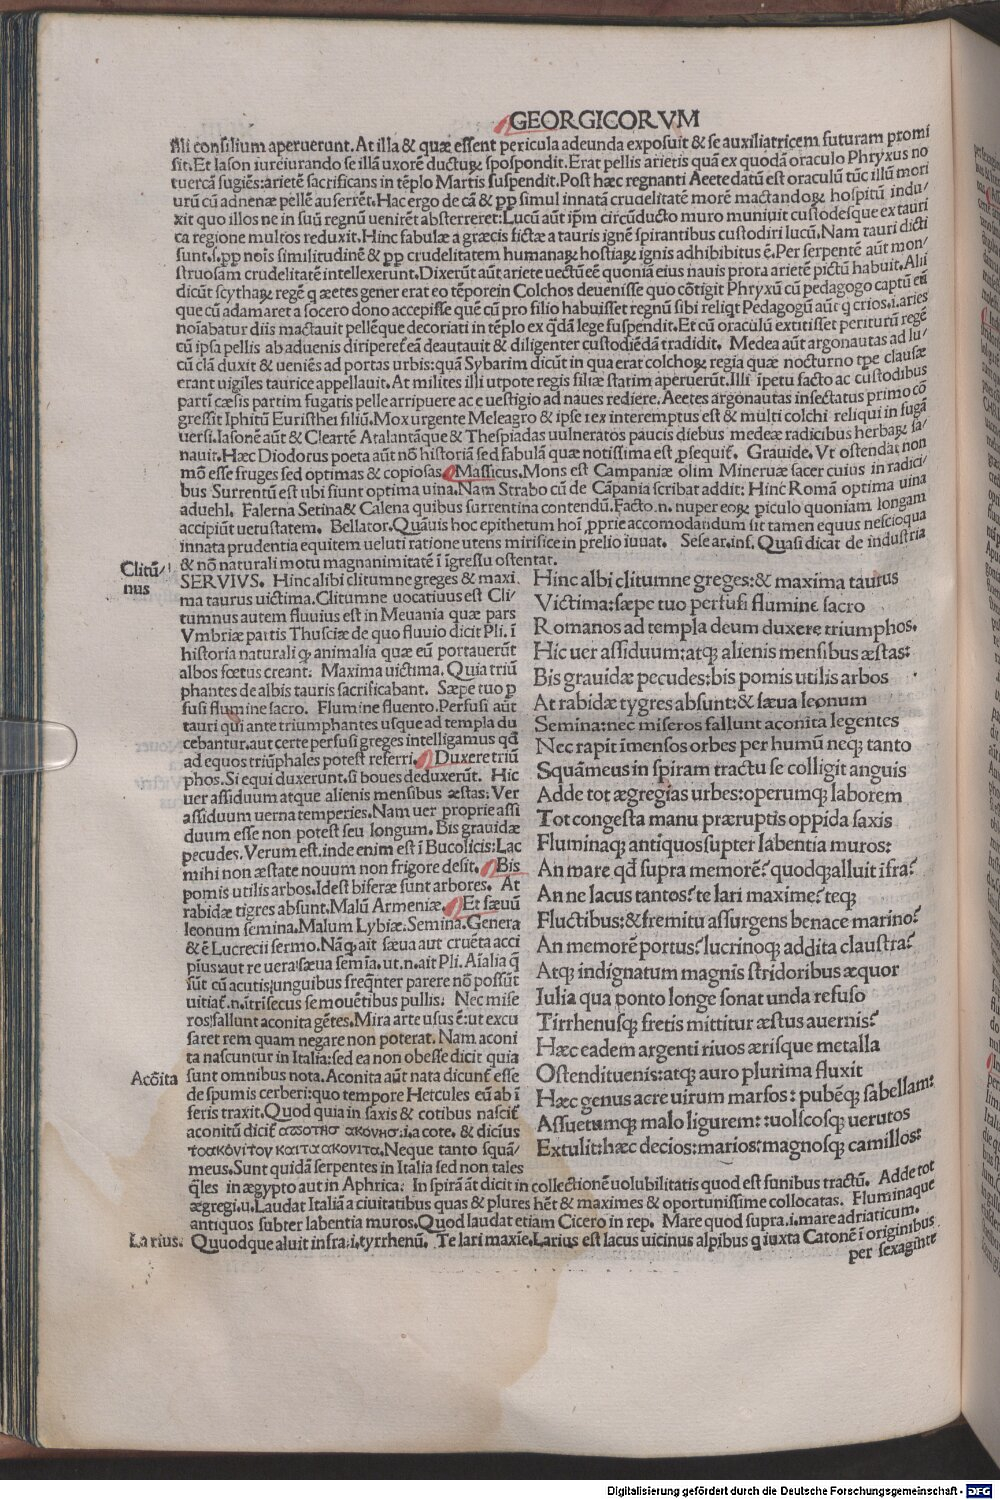 GEORGICORVM
illi consilium aperuerunt. At illa & quæ essent pericula adeunda exposuit & se auxiliatricem futuram promi
sit. Et Iason iureiurando se illã uxorē ducturꝝ spospondit. Erat pellis arietis quã ex quodã oraculo Phryxus no
uercã fugiēs: arietē sacrificans in tēplo Martis suspendit. Post hæc regnanti Aeete datũ est oraculũ tũc illũ mori
urũ cũ aduenæ pellē auferrēt. Hac ergo de cã & ꝓp simul innatã crudelitatē morē mactandoꝝ hospitũ indu/
xit quo illos ne in suũ regnũ uenirēt absterreret: Lucũ aũt ip̄m circũducto muro muniuit custodesque ex tauri
ca regione multos reduxit. Hinc fabulæ a græcis fictæ a tauris ignē spirantibus custodiri lucũ. Nam tauri dicti
sunt. s. ꝓp nois similitudinē & ꝓp crudelitatem humanaꝝ hostiaꝝ ignis adhibibitus ē. Per serpentē aũt mon/
struosam crudelitatē intellexerunt. Dixerũt aũt ariete uectũ eē quonia eius nauis prora arietē pictũ habuit. Alii
dicũt scythaꝝ regē q̄ æetes gener erat eo tēpore in Colchos deuenisse quo cōtigit Phryxũ cũ pedagogo captũ eē
que cũ adamaret a socero dono accepisse quē cũ pro filio habuisset regnũ sibi reliqt Pedagogũ aũt q̄ crios. i. aries
noiabatur diis mactauit pellēque decoriati in tēplo ex q̄dã lege suspendit. Et cũ oraculũ extitisset periturũ regē
cũ ipsa pellis ab aduenis diriperet' eã deautauit & diligenter custodiēdã tradidit. Medea aũt argonautas ad lu/
cũ clã duxit & ueniēs ad portas urbis: quã Sybarim dicũt in qua erat colchoꝝ regia quæ nocturno tp̄e clausæ
erant uigiles taurice appellauit. At milites illi utpote regis filiæ statim aperuerũt. Illi ipetu facto ac custodibus
parti cæsis partim fugatis pelle arripuere ac e uestigio ad naues rediere. Aeetes argonautas insectatus primo cō
gressit Iphitũ Euristhei filiũ. Mox urgente Meleagro & ipse rex interemptus est & multi colchi reliqui in fugã
uersi. Iasonē aũt & Cleartē Atalantãque & Thespiadas uulneratos paucis diebus medeæ radicibus herbaꝝ sa/
nauit. Hæc Diodorus poeta aũt nō historiã sed fabulã quæ notissima est ꝓsequit'. Grauide. Vt ostendat non
mō esse fruges sed optimas & copiosas. Massicus. Mons est Campaniæ olim Mineruæ sacer cuius in radici/
bus Surrentũ est ubi fiunt optima uina. Nam Strabo cũ de Cãpania scribat addit: Hinc Romã optima uina
aduehl. Falerna Setina & Calena quibus surrentina contendũ. Facto. n. nuper eoꝝ piculo quoniam longam
accipiũt uetustatem. Bellator. Quãuis hoc epithetum hoi ꝓprie accomodandum sit tamen equus nescioqua
innata prudentia equitem ueluti ratione utens mirifice in prelio iuuat. Sese ar. inf. Quasi dicat de industria
& nō naturali motu magnanimitatē i īgressu ostentat.
Clitũ/
nus
SERVIVS. Hinc alibi clitumne greges & maxi
ma taurus uictima. Clitumne uocatiuus est Cli/
tumnus autem fluuius est in Meuania quæ pars
Vmbriæ partis Thusciæ de quo fluuio dicit Pli. ī
historia naturali q̄ animalia quæ eũ portauerũt
albos fœtus creant. Maxima uictima. Quia triũ
phantes de albis tauris sacrificabant. Sæpe tuo p
fusi flumine sacro. Flumine fluento. Perfusi aũt
tauri qui ante triumphantes usque ad templa du
cebantur. aut certe perfusi greges intelligamus qđ
ad equos triũphales potest referri. Duxere triũ
phos. Si equi duxerunt. si boues deduxerũt. Hic
uer assiduum atque alienis mensibus æstas: Ver
assiduum uerna temperies. Nam uer proprie assi
duum esse non potest seu longum. Bis grauidæ
pecudes. Verum est. inde enim est i Bucolicis: Lac
mihi non æstate nouum non frigore defit. Bis
pomis utilis arbos. Idest biferæ sunt arbores. At
rabidæ tigres absunt. Malũ Armeniæ. Et sæuũ
leonum semina. Malum Lybiæ. Semina. Genera
& ē Lucrecii sermo. Nãq̄ ait sæua aut cruēta acci
pius: aut re uera sæua semia. ut. n. ait Pli. Aialia q̄
sũt cũ acutis: unguibus freq̄nter parere nō possũt
uitiat'. n. ītrisecus se mouētibus pullis: Nec mise
ros fallunt aconita gētes. Mira arte usus ē: ut excu
saret rem quam negare non poterat. Nam aconi
ta nascuntur in Italia: sed ea non obesse dicit quia
Acōita
sunt omnibus nota. Aconita aũt nata dicunt' esse
de spumis cerberi: quo tempore Hercules eũ ab i
feris traxit. Quod quia in saxis & cotibus nascit'
meus. Sunt quidã serpentes in Italia sed non tales
Hinc albi clitumne greges: & maxima taurus
Victima: sæpe tuo perfusi flumine sacro
Romanos ad templa deum duxere triumphos.
Hic uer assiduum: atq̃ alienis mensibus æstas:
Bis grauidæ pecudes: bis pomis utilis arbos
At rabidæ tygres absunt: & sæua leonum
Semina: nec miseros fallunt aconita legentes
Nec rapit īmensos orbes per humũ neq̃ tanto
Squãmeus in spiram tractu se colligit anguis
Adde tot ægregias urbes: operumq̃ laborem
Tot congesta manu præruptis oppida saxis
Fluminaq̃ antiquos supter labentia muros:
An mare qđ supra memorē? quodq̃ alluit ifra?
An ne lacus tantos? te lari maxime? teq̃
Fluctibus: & fremitu assurgens benace marino?
An memorē portus? lucrinoq̃ addita claustra?
Atq̃ indignatum magnis stridoribus æquor
Iulia qua ponto longe sonat unda refuso
Tirrhenusq̃ fretis mittitur æstus auernis?
Hæc eadem argenti riuos ærisque metalla
Ostendit uenis: atq̃ auro plurima fluxit
Hæc genus acre uirum marsos: pubēq̃ sabellam:
Assuetumq̃ malo ligurem: uolscosq̃ uerutos
Extulit: hæc decios: marios: magnosq̃ camillos:
q̄les in ægypto aut in Aphrica. In spirã ãt dicit in collectionē uolubilitatis quod est funibus tractũ. Adde tot
ægregi. u. Laudat Italiã a ciuitatibus quas & plures hēt & maximes & oportunissime collocatas. Fluminaque
antiquos subter labentia muros. Quod laudat etiam Cicero in rep. Mare quod supra. i. mare adriaticum.
Larius.
Quuodque aluit infra. i. tyrrhenũ. Te lari maxie. Larius est lacus uicinus alpibus q̄ iuxta Catonē i originibus
per sexaginte
Digitalisierung gefördert durch die Deutsche Forschungsgemeinschaft - DFG